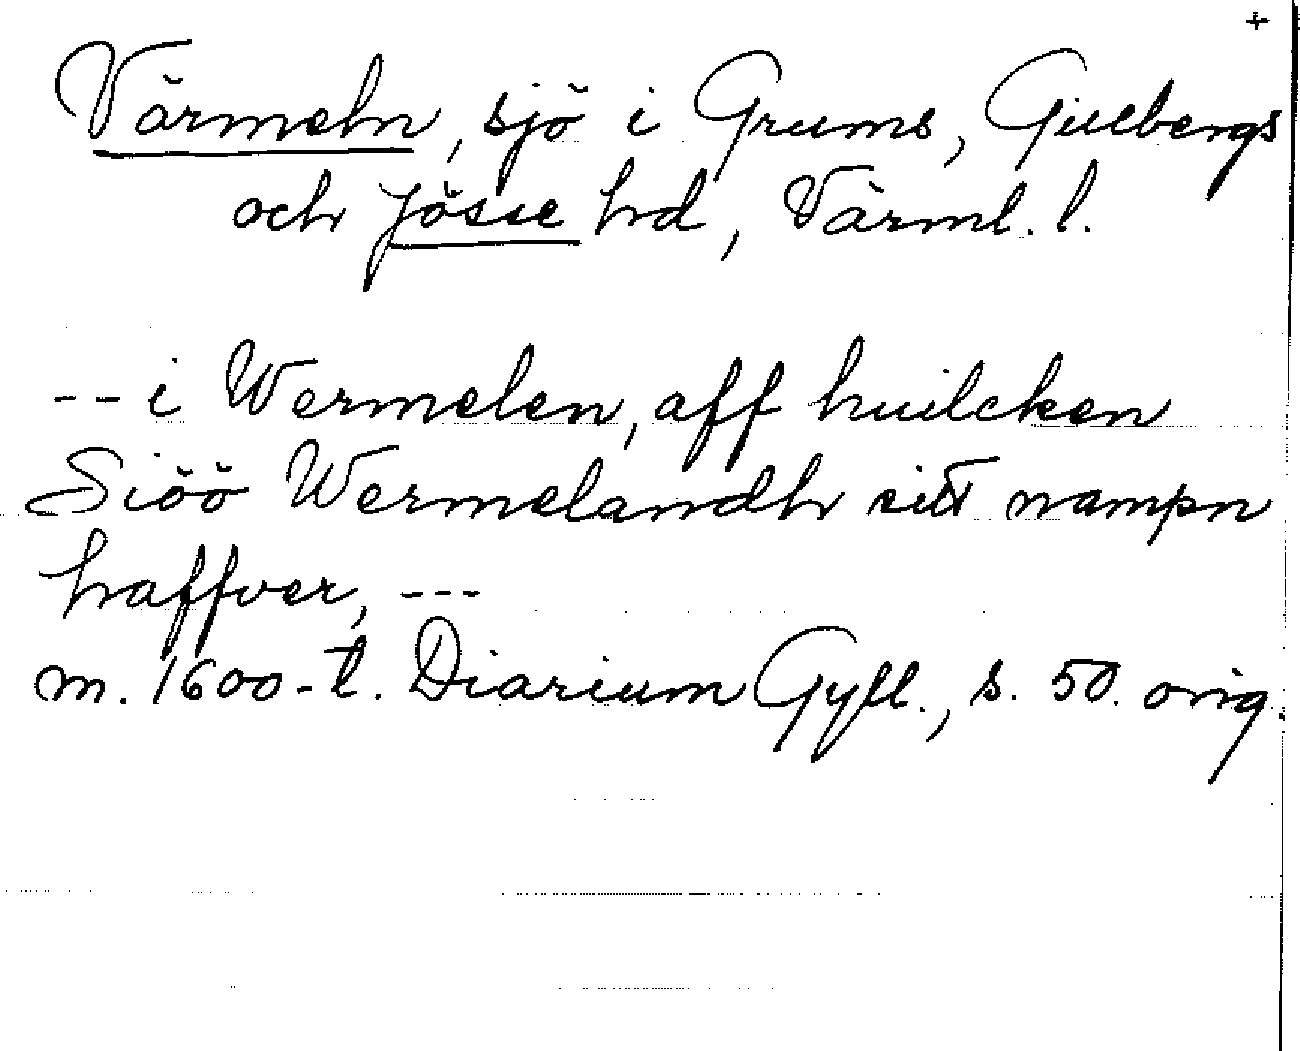 +
Värmeln, sjö i Grums, Gillbergs
och Jösse hd, Värml. l.
-- i Wermelen, aff huilcken
Siöö Wermelandh sitt nampn
haffver, ---
m. 1600-t. Diarium Gyll., s. 50. orig.